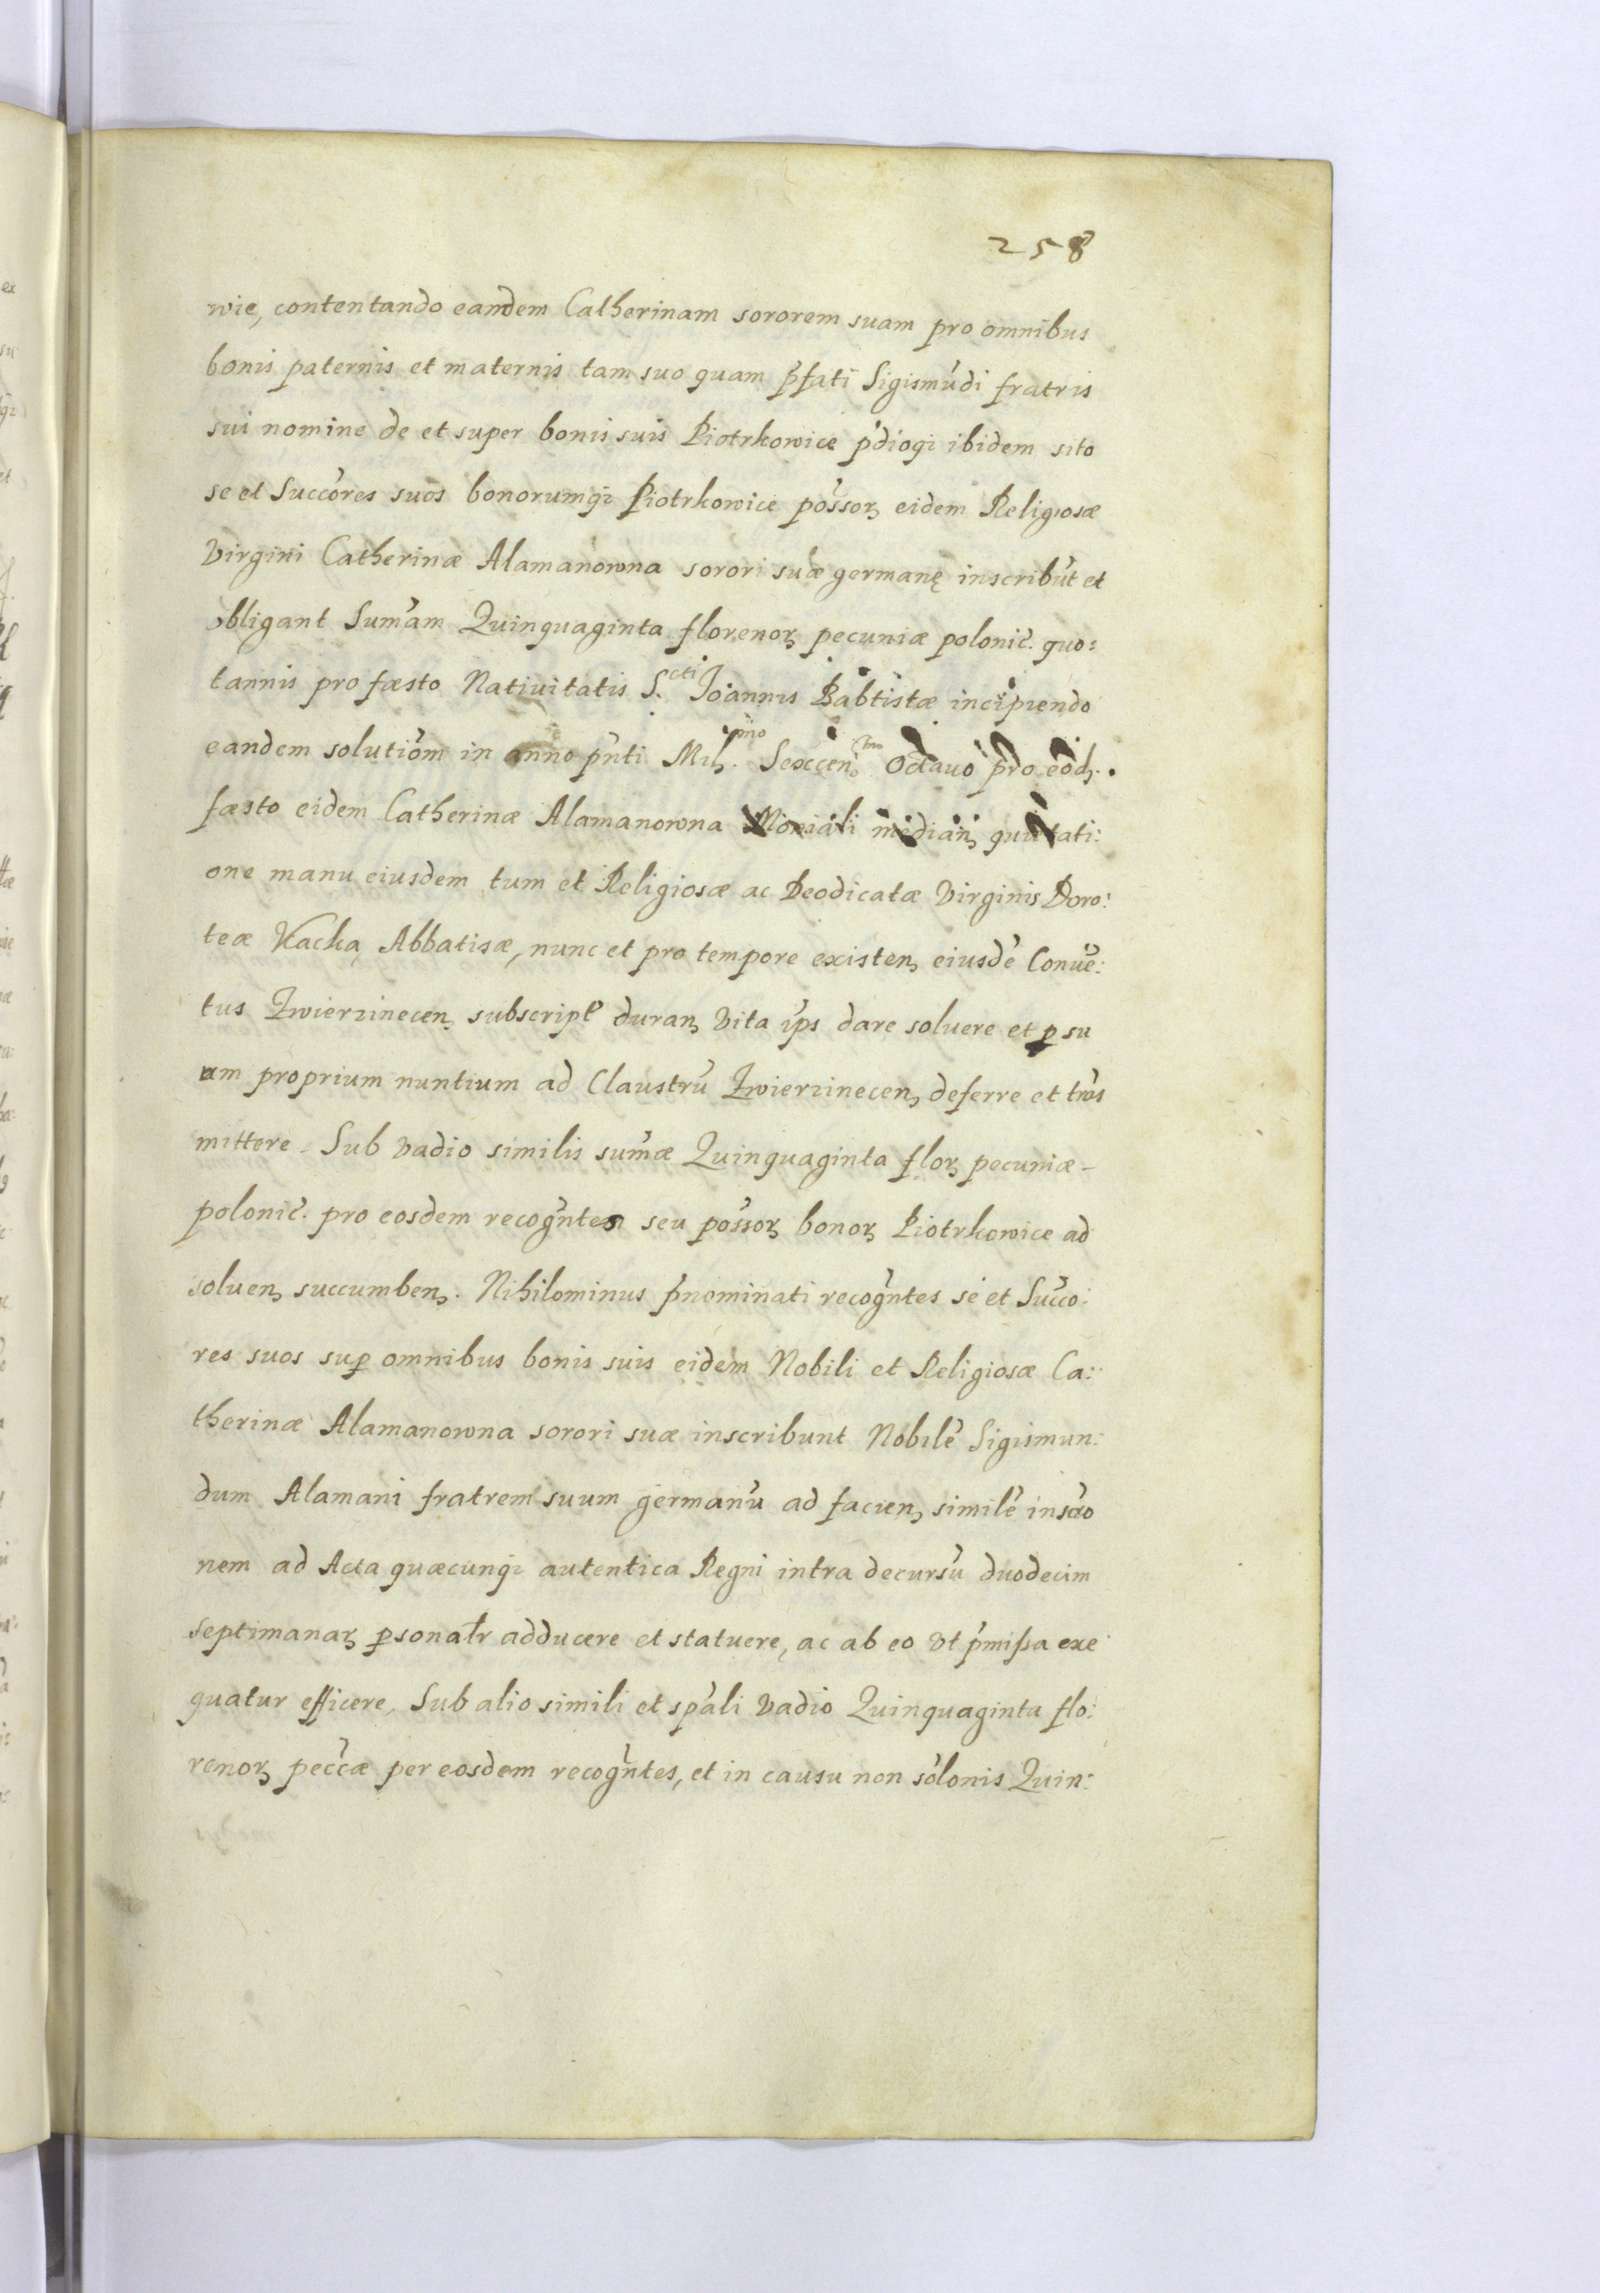 258
wie, contentando eandem Catherinam sororem suam pro omnibus
bonis paternis et maternis tam suo quam p̃fati Sigismũdi fratris
sui nomine de et super bonis suis Piotrkowice p̃diogi ibidem sito
se et Succõres suos bonorumq₃ Piotrkowice põssoꝝ eidem Religiosæ
Virgini Catherinæ Alamanowna sorori suæ germanę inscribũt et
obligant Sum̃am Quinquaginta florenoꝝ pecuniæ polonic̃. quo:
tannis pro fæsto Natiuitatis S.cti Joannis Babtistæ incipiendo
eandem solutiõm in anno p̃nti Mil̃l.mo Sexcen.tmo Octauo pro eod̃.
fæsto eidem Catherinæ Alamanowna Moniali median̨ quitati:
one manu eiusdem tum et Religiosæ ac Deodicatæ Virginis Doro:
teæ Kącka Abbatisæ, nunc et pro tempore existen̨ eiusdẽ Conuẽ:
tus Zwierzinecen̨ subscript̃ duran̨ Vita ip̃s dare soluere et ꝑ su
um proprium nuntium ad Claustrũ Zwierzinecen̨ deferre et trãs
mittere - Sub vadio similis sum̃æ Quinquaginta floꝝ pecuniæ -
polonic̃. pro eosdem recog̃ntes seu põssoꝝ bonoꝝ Piotrkowice ad
soluen̨ succumben̨. Nihilominus p̃nominati recog̃ntes se et Succõ:
res suos suꝑ omnibus bonis suis eidem Nobili et Religiosæ Ca:
therinæ Alamanowna sorori suæ inscribunt Nobilẽ Sigismun:
dum Alamani fratrem suum germanũ ad facien̨ similẽ inscr̃o
nem ad Acta quæcunq₃ autentica Regni intra decursũ duodecim
septimanaꝝ ꝑsonalr̃ adducere et statuere, ac ab eo Vt p̃missa exe
quatur efficere, Sub alio simili et sp̃ali Vadio Quinquaginta flo:
renoꝝ pec̃cæ per eosdem recog̃ntes, et in causu non sõlonis Quin: